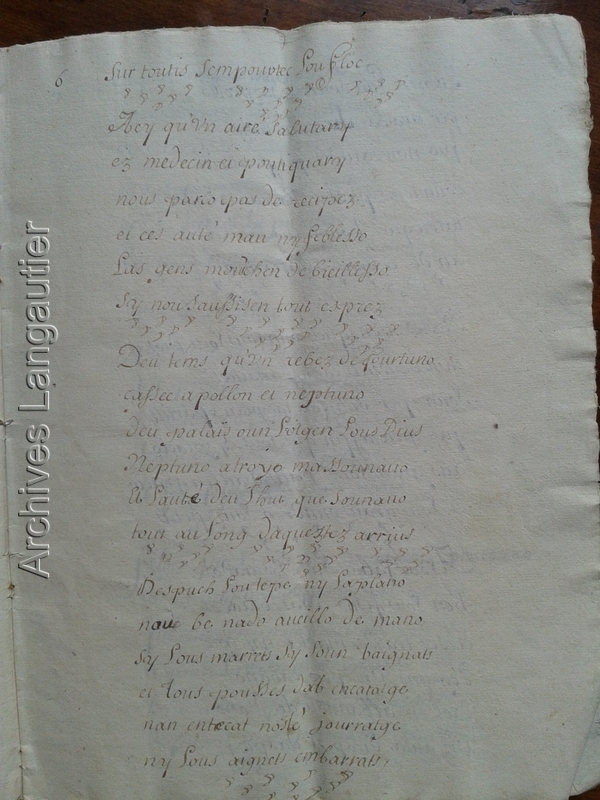 6
Sur toutis Sempouotec Lou floc
Acy qu'vn aire Salutary
ez medecin ei poutiquary
nous paro pas de recipez
ei ces auté mau ny feblesso
Las gens mouchen de bieillesso
Sy nou Saussisen tout esprez
Deu tems qu'vn rebez de fourtuno
cassec apollon et neptuno
deu palais oun Lotgen Lous Dius
Neptuno atroyo massounauo
Et Lauté deu Lhut que Sounauo
tout au Long daquestez arrius
Despuch Lou tepe ny La plano
nou be nado aueillo de mano
Sy Lous marrets Sy Soun baignats
et tous pousses dab encatatge
nan entecat nosté jourratge
ny Lous aignets embarrats
Archives Langautier